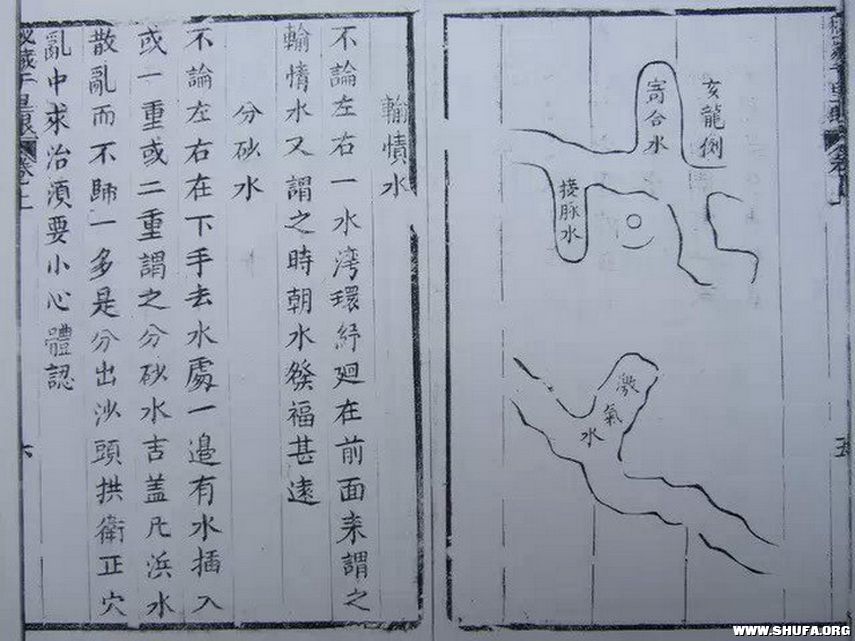 亥龍例
寄合水
接脉水
激氣水
五
輸情水
不論左右一水湾環紆廻在前面来謂之
輸情水又謂之時朝水發福甚遠
分砂水
不論左右在下手去水處一邉有水插入
或一重或二重謂之分砂水吉盖凡浜水
散亂而不歸一多是分出沙頭拱衛正穴
亂中求治須要小心體認
六
WWW.SHUFA.ORG